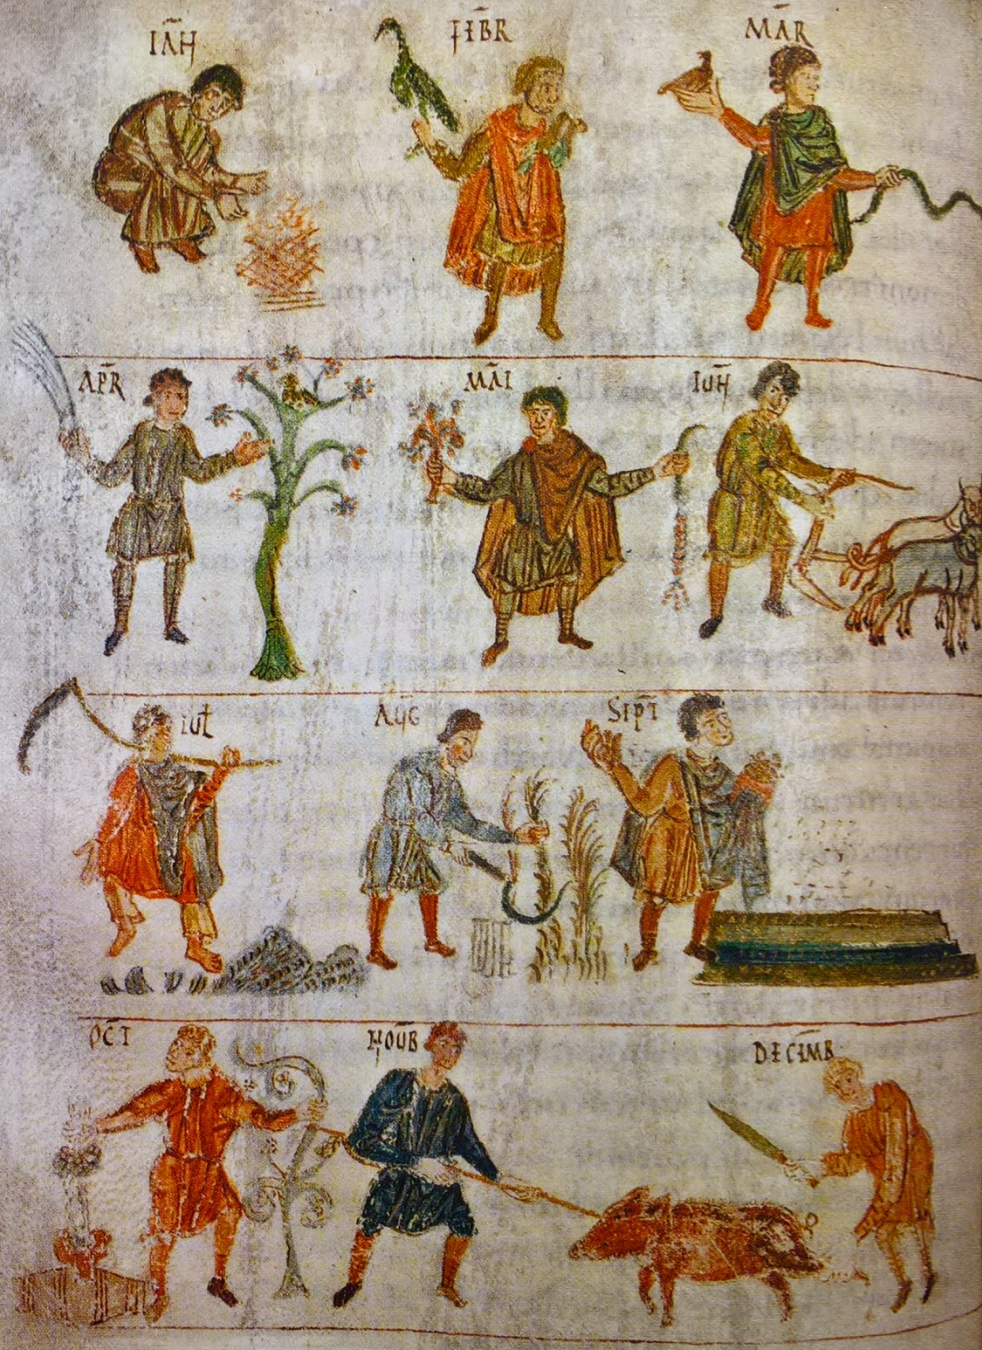 IAN̄
FEB̄R
MĀR
AP̄R
MĀI
IUN̄
iul
AUG
SEPT̄
OC̄T
NOŪB
DECEM̄B